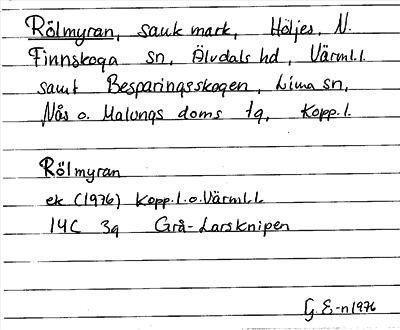 Rölmyran, sank mark, Höljes, N.
Finnskoga sn, Älvdals hd, Värml.l.
samt Besparingsskogen, Lima sn,
Nås o. Malungs doms tg, Kopp.l.
Rölmyran
ek (1976) Kopp.l.o.Värml.l.
14C 3q Grå-Larsknipen
G.E-n 1976